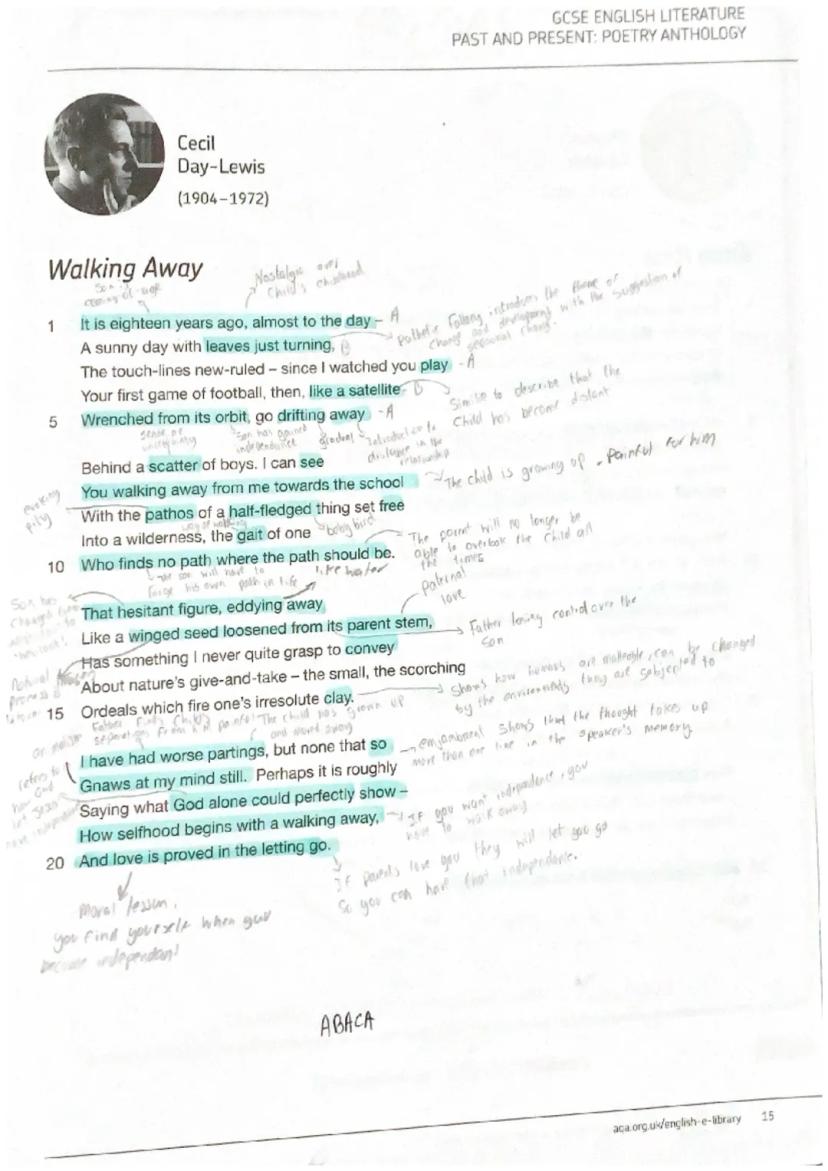 GCSE ENGLISH LITERATURE
PAST AND PRESENT: POETRY ANTHOLOGY
Cecil
Day-Lewis
(1904–1972)
Walking Away
Son is
coming of age
Nostalgic over
Child's childhood
1 It is eighteen years ago, almost to the day – A
A sunny day with leaves just turning, B
Pathetic Fallacy, introduces the theme of
change and development with the suggestion of
seasonal change.
The touch-lines new-ruled – since I watched you play - A
Your first game of football, then, like a satellite B
Simile to describe that the
Child has become distant
5 Wrenched from its orbit, go drifting away - A
sense of
uncertainty
Son has gained
independence
gradual
Introduction to
distance in the
relationship
Behind a scatter of boys. I can see
You walking away from me towards the school
The child is growing up. Painful for him
evoking
pity
With the pathos of a half-fledged thing set free
way of walking
baby bird
Into a wilderness, the gait of one
The parent will no longer be
able to overlook the child all
the times
10 Who finds no path where the path should be.
The son will have to
forge his own path in life
like water
Son has
paternal
love
That hesitant figure, eddying away
Like a winged seed loosened from its parent stem,
Father losing control over the
Son
Has something I never quite grasp to convey
Natural
process
About nature's give-and-take – the small, the scorching
15 Ordeals which fire one's irresolute clay.
Shows how humans are malleable, can be changed
by the environments they are subjected to
Father finds child's
separation from him painful
The child has grown up
and moved away
I have had worse partings, but none that so
enjambment shows that the thought takes up
more than one line in the speaker's memory
refers to
how God
let Jesus
have independence
Gnaws at my mind still. Perhaps it is roughly
Saying what God alone could perfectly show –
How selfhood begins with a walking away,
IF you want independence, you
have to walk away
20 And love is proved in the letting go.
IF parents love you they will let you go
So you can have that independance.
Moral lesson,
you find yourself when you
become independant
ABACA
aqa.org.uk/english-e-library 15